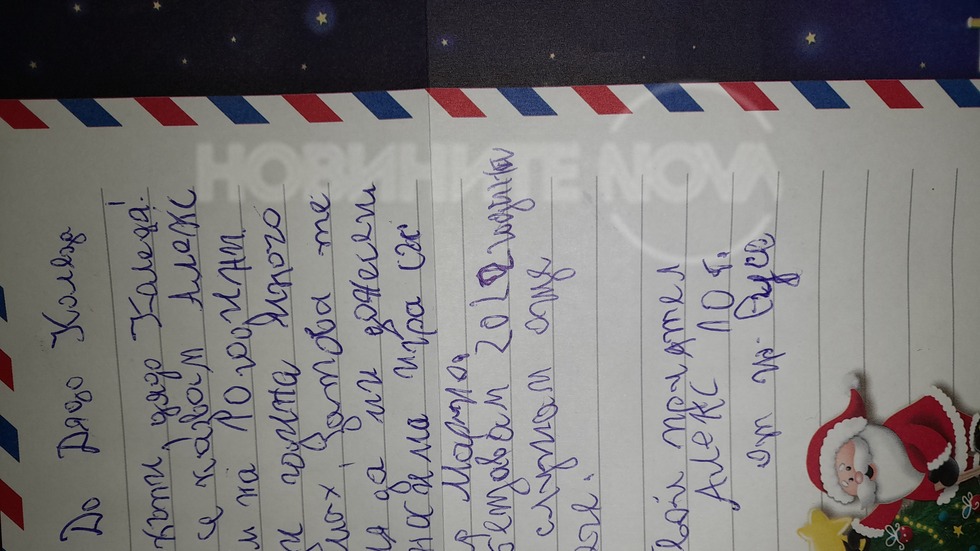 До Дядо Коледа
жъпи, дядо Каледа!
се казвам Алекс
м на 10 години
и година много
мах, затова те
я да ми донесеш
носима игра със
р Марио.
бещавам 2022 година
слушам още
ече.
Твой приятел
Алекс 10 г.
от гр. Русе
НОВИНИТЕ NOVA